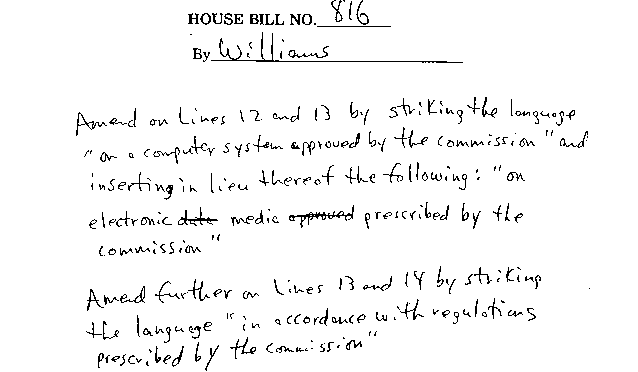 HOUSE BILL NO. 816
By Williams
Amend on Lines 12 and 13 by striking the language
"on a computer system approved by the commission" and
inserting in lieu thereof the following: "on
electronic data media approved prescribed by the
commission"
Amend further on Lines 13 and 14 by striking
the language "in accordance with regulations
prescribed by the commission"